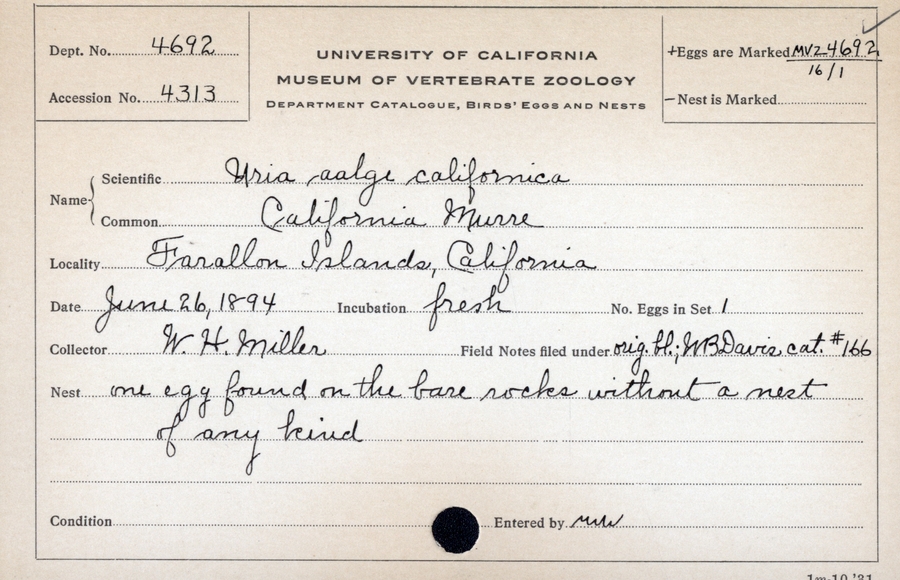 Dept. No. 4692
Accession No. 4313
UNIVERSITY OF CALIFORNIA
MUSEUM OF VERTEBRATE ZOOLOGY
DEPARTMENT CATALOGUE, BIRDS' EGGS AND NESTS
+Eggs are Marked MVZ4692
16/1
–Nest is Marked
Name
Scientific Uria aalge californica
Common California Murre
Locality Farallon Islands, California
Date June 26, 1894 Incubation fresh No. Eggs in Set 1
Collector W. H. Miller Field Notes filed under orig. bl.; WBDavis cat. #166
Nest one egg found on the bare rocks without a nest
of any kind
Condition Entered by
1m-10,'31